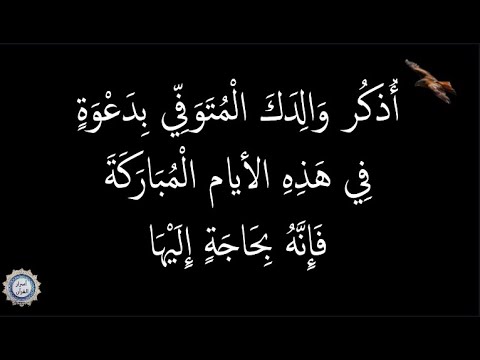 أُذكُر وَالِدَكَ الْمُتَوَفِّي بِدَعْوَةٍ
فِي هَذِهِ الأيام الْمُبَارَكَةَ
فَإِنَّهُ بِحَاجَةٍ إِلَيْهَا
أسرار
القرآن